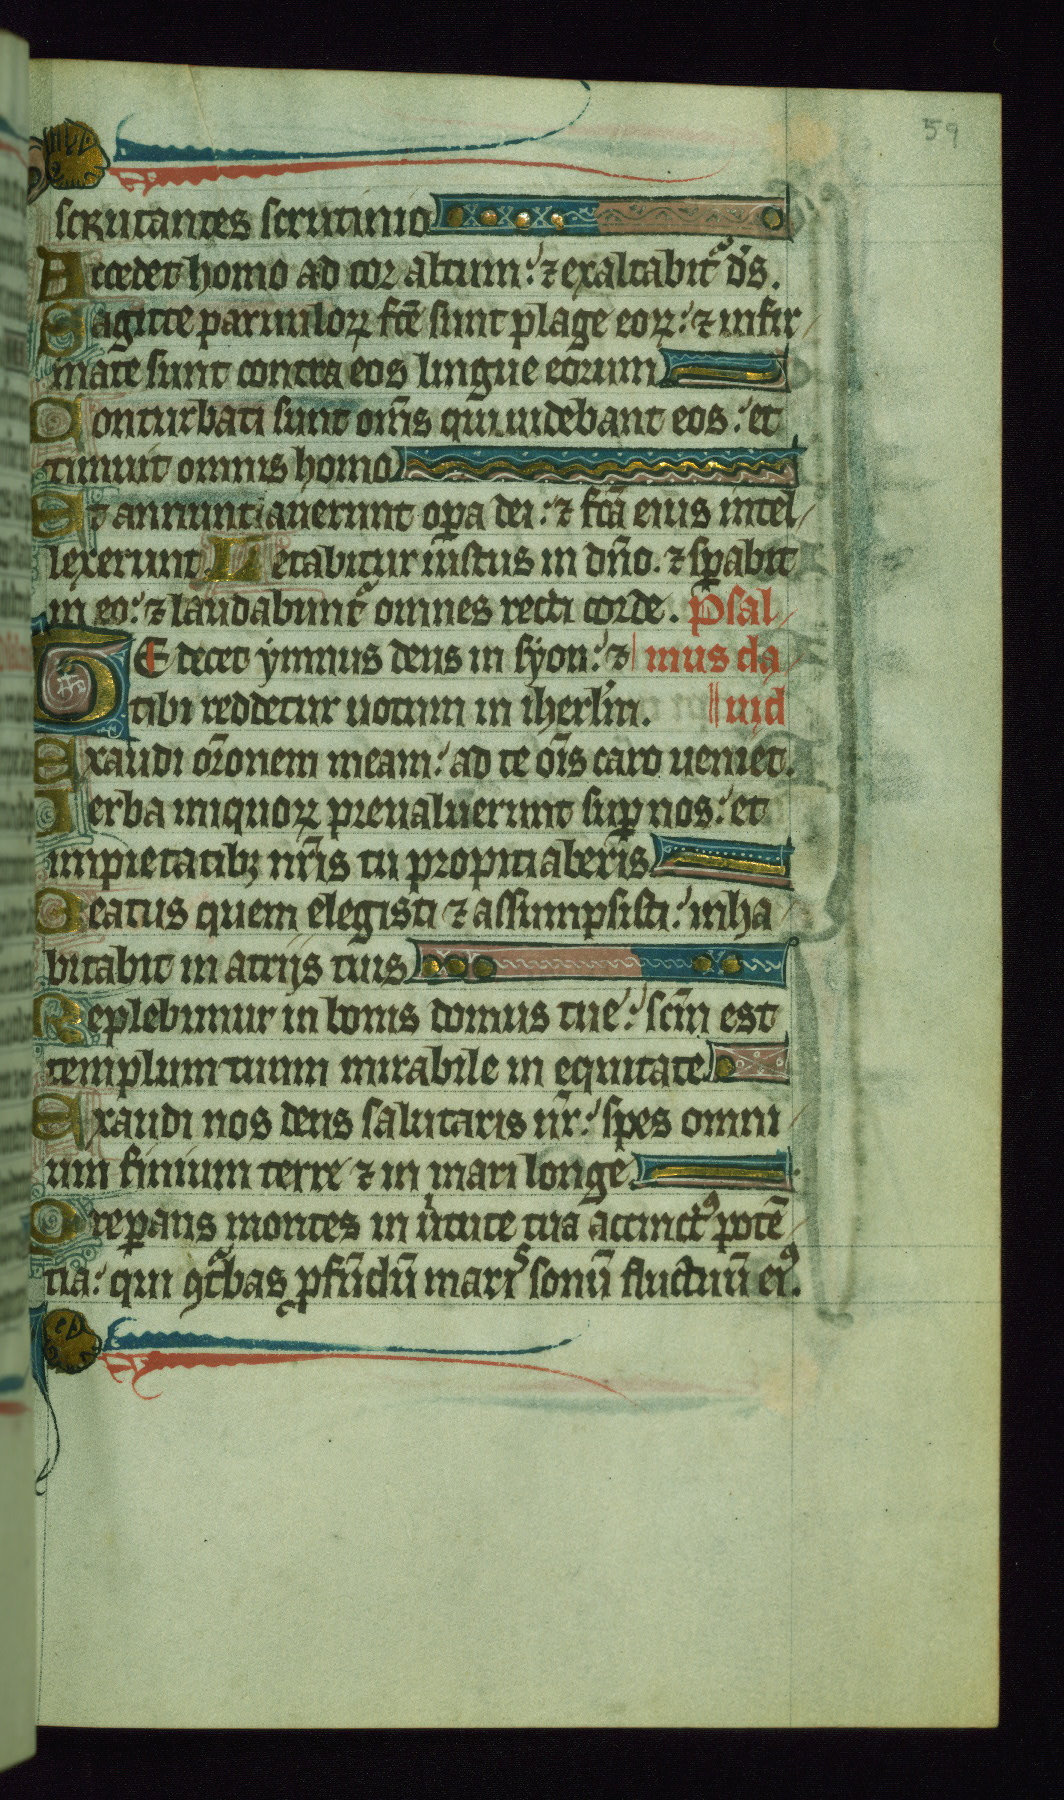 59
scrutantes scrutinio
Accedet homo ad cor altum: ⁊ exaltabit᷑ d̄s.
Sagitte paruuloꝝ fc̄e sunt plage eoꝝ: ⁊ infir
mate sunt contra eos lingue eorum
Conturbati sunt om̄s qui uidebant eos: et
timuit omnis homo
Et annuntiauerunt oꝑa dei: ⁊ fc̄a eius intel
lexerunt. Letabitur iustus in dn̄o. ⁊ sꝑabit
in eo: ⁊ laudabunt᷑ omnes recti corde. Psal
TE decet ymnus deus in syon: ⁊ mus da
tibi reddetur uotum in iherl̄m. uid
Exaudi or̄onem meam: ad te oīs caro ueniet.
Verba iniquoꝝ preualuerunt suꝑ nos: et
impietatibꝫ nr̄is tu propitiaberis
Beatus quem elegisti ⁊ assumpsisti: inha
bitabit in atrijs tuis
Replebimur in bonis domus tue: sc̄m est
templum tuum mirabile in equitate
Exaudi nos deus salutaris nr̄: spes omni
um finium terre ⁊ in mari longe
Preparans montes in u̇tute tua accinctꝰ potē
tia: qui ꝯt᷑bas ꝓfūdū maris sonū fluctuū eiꝰ.